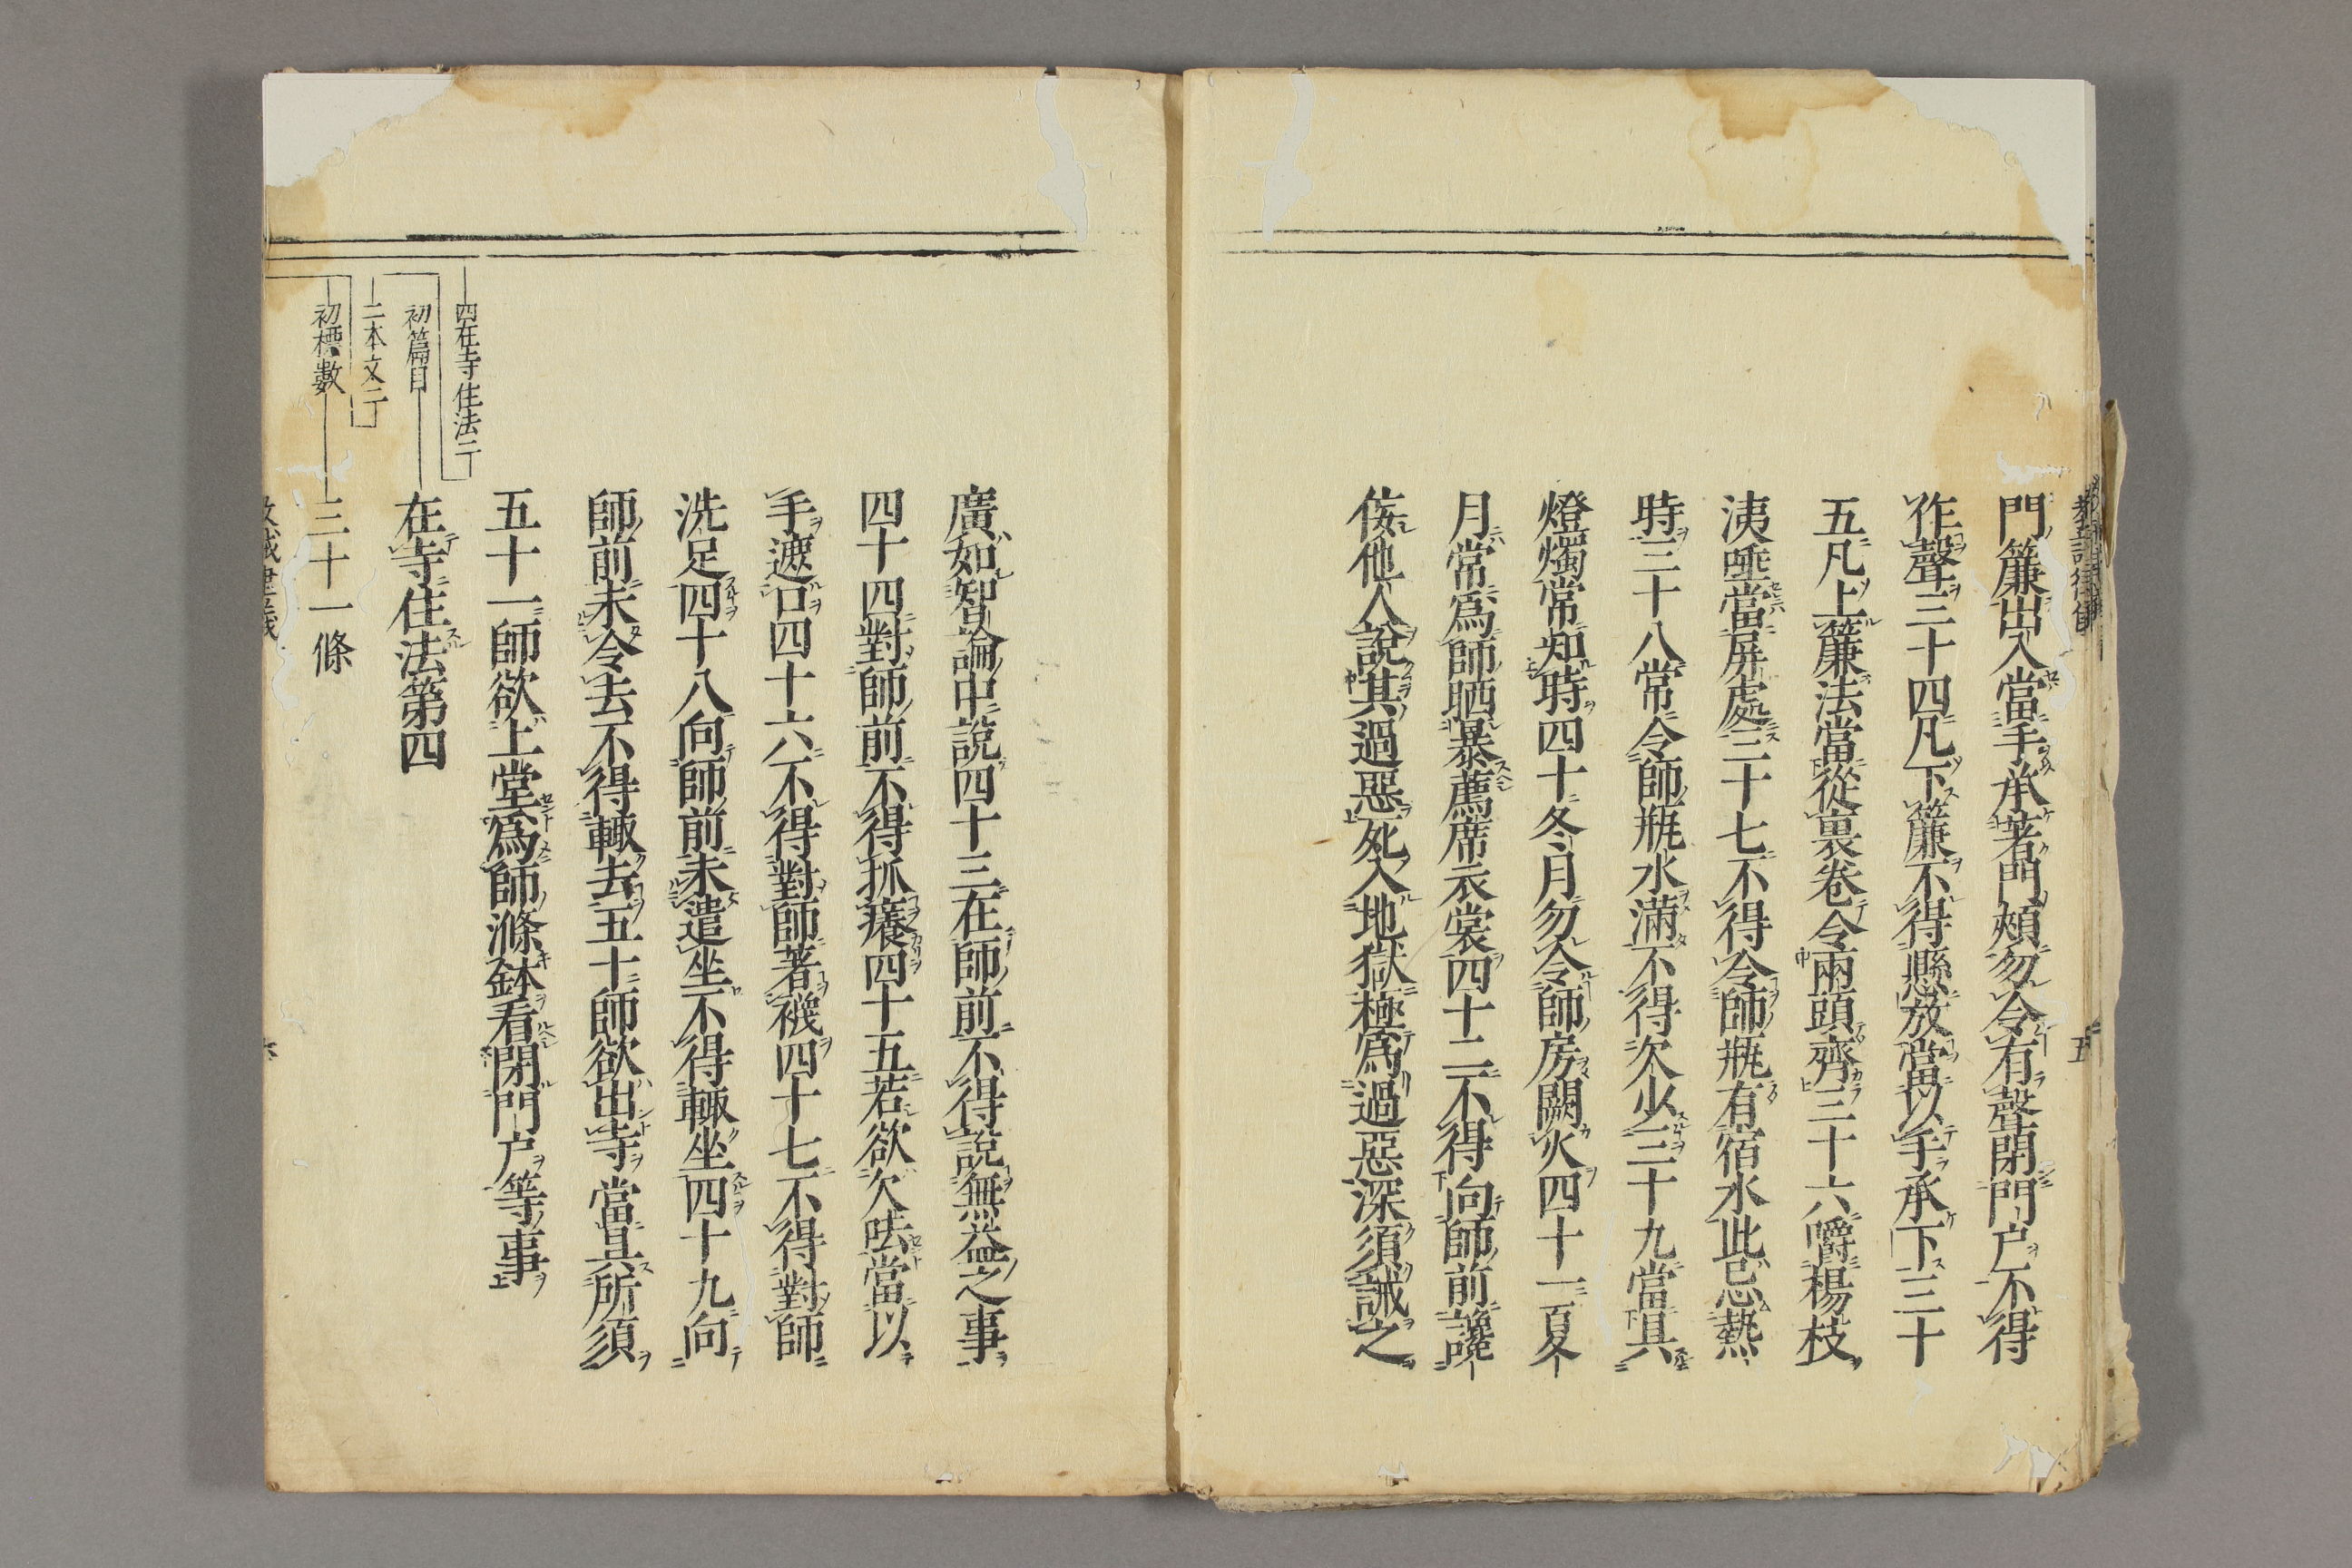 門簾出入當手承著門頰勿令有聲閉門户不得
作聲三十四凡下簾不得懸放當以手承下三十
五凡上簾法當從裏卷令兩頭齊三十六嚼楊枝
洟唾當屏處三十七不得令師瓶有宿水此忌熱
時三十八常令師瓶水滿不得欠少三十九當具
燈燭常知時四十冬月勿令師房闕火四十一夏
月常爲師晒暴薦席衣裳四十二不得向師前讒
佞他人說其過惡死入地獄極爲過惡深須誡之
廣如智論中說四十三在師前不得說無益之事
四十四對師前不得抓癢四十五若欲欠呿當以
手遮口四十六不得對師著襪四十七不得對師
洗足四十八向師前未遣坐不得輙坐四十九向
師前未令去不得輙去五十師欲出寺當具所須
五十一師欲上堂爲師滌鉢看閉門户等事
四在寺住法二
初篇目
在寺住法第四
二本文二
初標數
三十一條